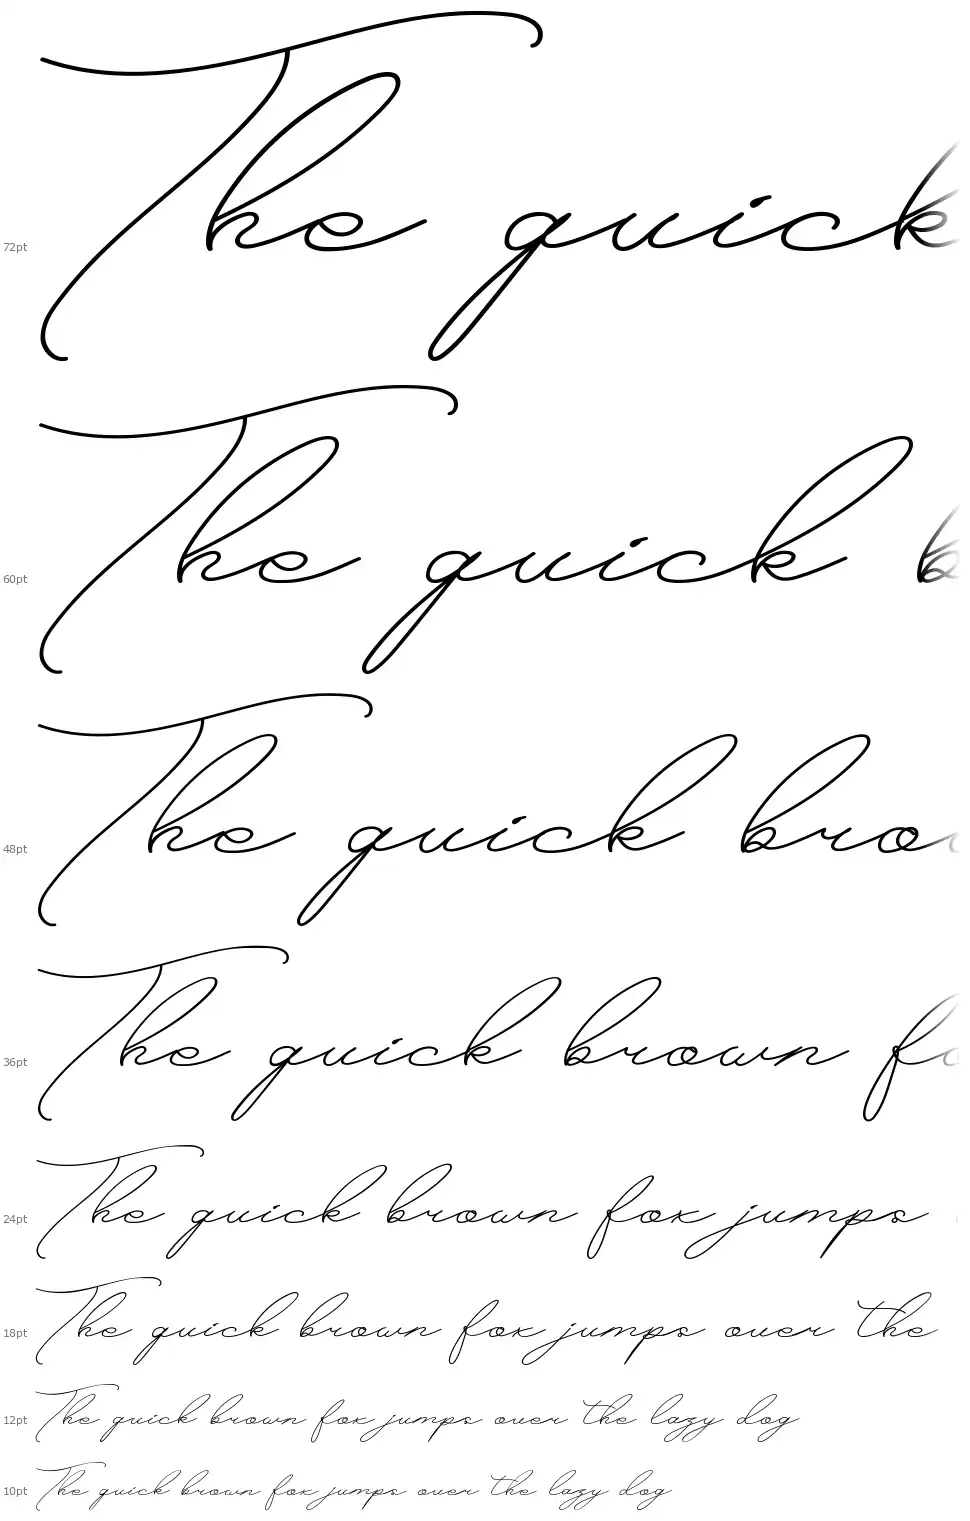 72pt The quick
60pt The quick b
48pt The quick brow
36pt The quick brown fo
24pt The quick brown fox jumps
18pt The quick brown fox jumps over the
12pt The quick brown fox jumps over the lazy dog
10pt The quick brown fox jumps over the lazy dog